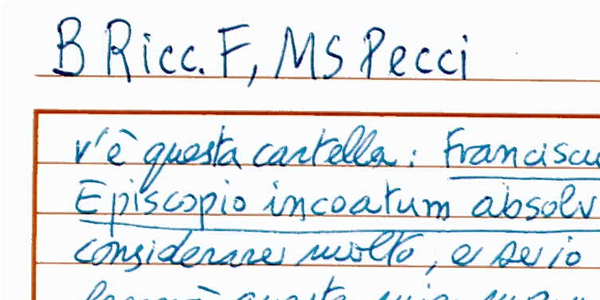 B Ricc. F, MS Pecci
v'è questa cartella: Franciscu
Episcopio incoatum absolv
considerare molto, e se io
questa mia